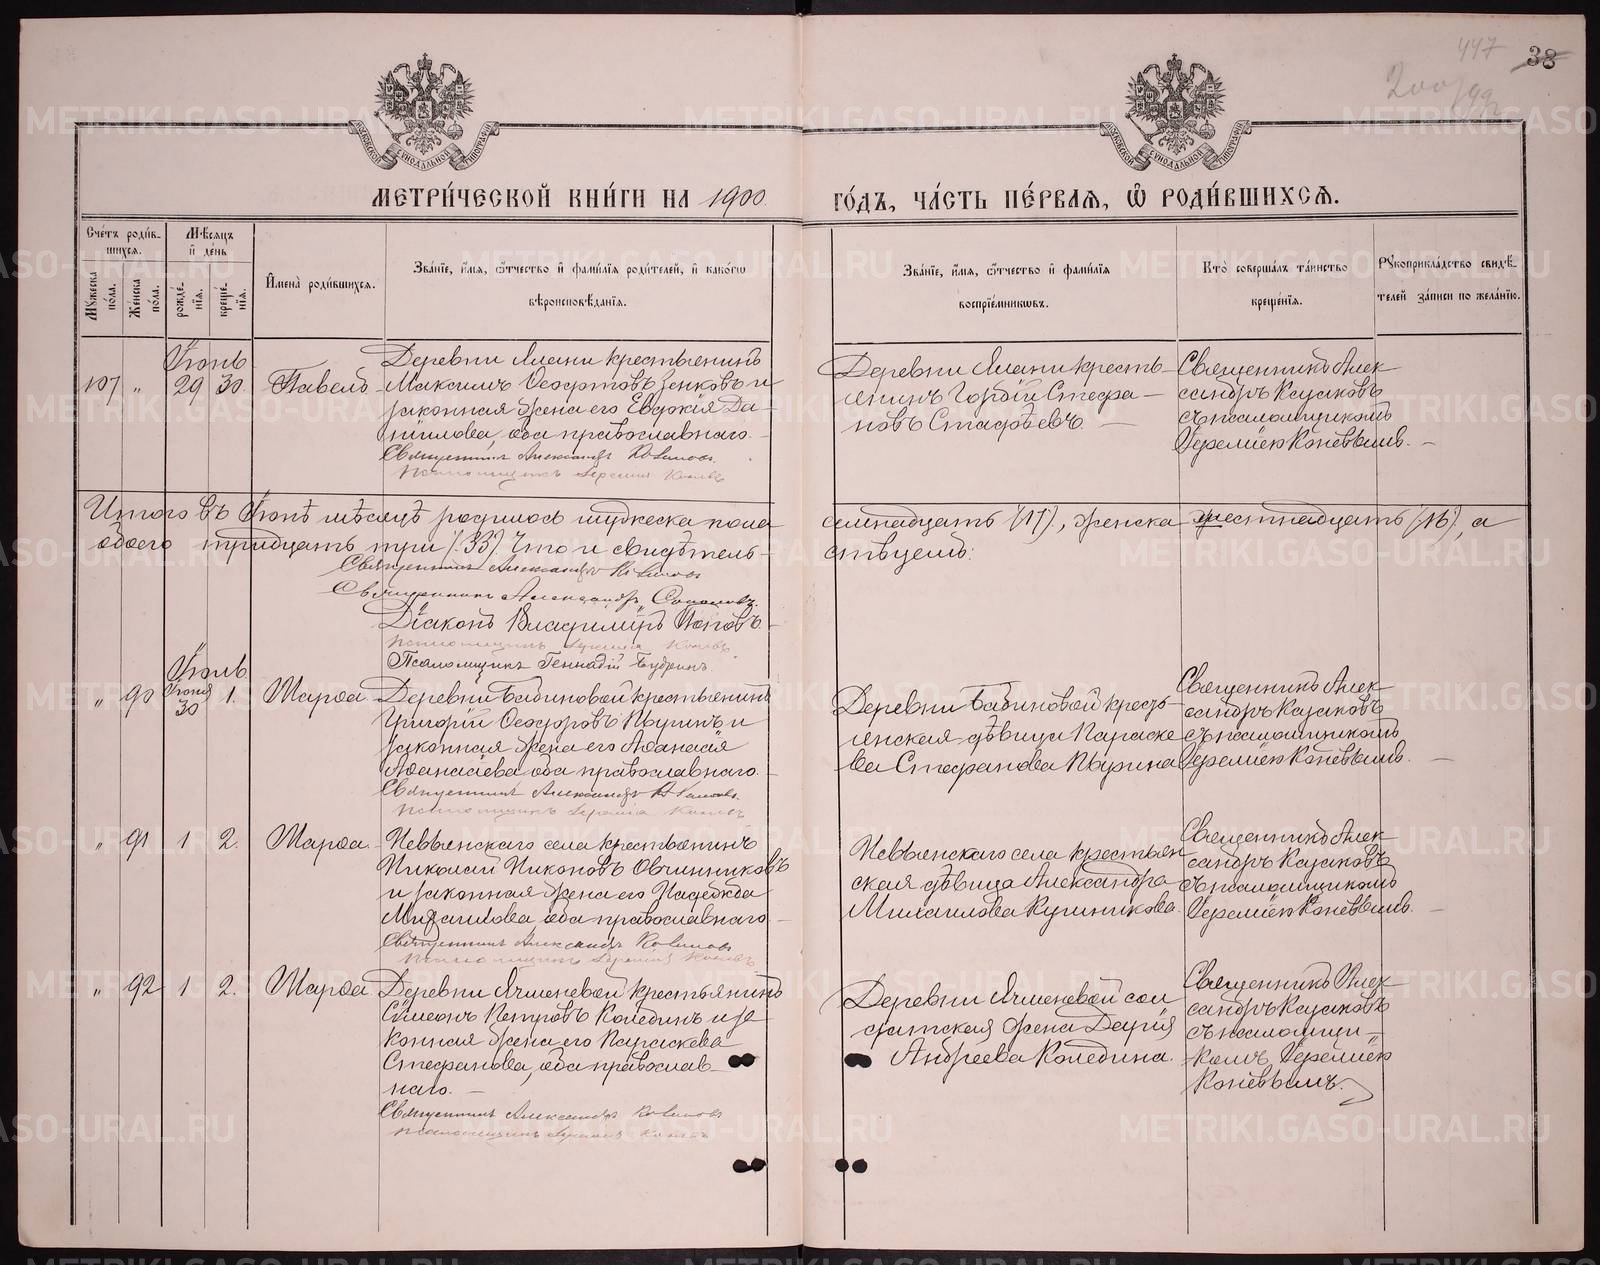 447
38
200/99
МЕТРИ́ЧЕСКОЙ КНИ́ГИ НА 1900
ГО́ДЪ, ЧА́СТЬ ПЕ́РВАЯ, Ѡ҆ РОДИ́ВШИХСЯ.
Сче́тъ роди́в-
шихся.
Му́жеска
по́ла.
Же́нска
по́ла.
Мѣ́сяцъ
и҆ де́нь
рожде́-
нїя.
креще́-
нїя.
И҆мена̀ роди́вшихся.
Зва́нїе, и҆́мя, ѻ҆́тчество и҆ фами́лїя роди́телей, и҆ како́гѡ
вѣроисповѣ́данїя.
Зва́нїе, и҆́мя, ѻ҆́тчество и҆ фами́лїя
воспрїе́мниковъ.
Кто̀ соверша́лъ та́инство
креще́нїя.
Рꙋкоприкла́дство свидѣ́-
телей за́писи по жела́нїю.
Іюнь
107 „ 29 30. Павелъ
Деревни Ялани крестьянинъ
Максимъ Ѳеодотовъ Зенковъ и
законная жена его Евдокія Да-
ніилова, оба православнаго.
Священникъ Александръ
Деревни Ялани кресть-
янинъ Гордій Стефа-
новъ
Священникъ Алек-
сандръ Казаковъ
съ псаломщикомъ
Іереміею Конёвымъ.
Итого въ Іюнѣ мѣсяцѣ родилось мужеска пола
семнадцать (17), женска шестнадцать (16), а
обоего тридцать три (33). Что и свидѣтель-
ствуемъ:
Священникъ Александръ
Священникъ Александръ
Діаконъ Владиміръ Поповъ
Псаломщикъ Геннадій Будринъ
Іюль
„ 90 Іюня 30 1. Марѳа
Деревни Бабиновой крестьянинъ
Григорій Ѳеодоровъ Пыринъ и
законная жена его Аѳанасія
Аѳанасіева, оба православнаго.
Священникъ Александръ
Деревни Бабиновой кресть-
янская дѣвица Параске
ва Стефанова Пырина
Священникъ Алек-
сандръ Казаковъ
съ псаломщикомъ
Іереміею Конёвымъ.
„ 91 1 2. Марѳа
Невьянскаго села крестьянинъ
Николай Никоновъ Овчинниковъ
и законная жена его Надежда
Михаилова, оба православнаго.
Священникъ Александръ
Невьянскаго села крестьян
ская дѣвица Александра
Михаилова
Священникъ Алек-
сандръ Казаковъ
съ псаломщикомъ
Іереміею Конёвымъ.
„ 92 1 2. Марѳа
Деревни Ячменевой крестьянинъ
Симеонъ Петровъ Коледин и за-
конная жена его Параскева
Стефанова, оба православ-
наго.
Священникъ Александръ
Деревни Ячменевой сол
датская жена Дарія
Андреева Коледина.
Священникъ Алек-
сандръ Казаковъ
съ псаломщи-
комъ Іереміею
Конёвымъ.
METRIKI.GASO-URAL.RU